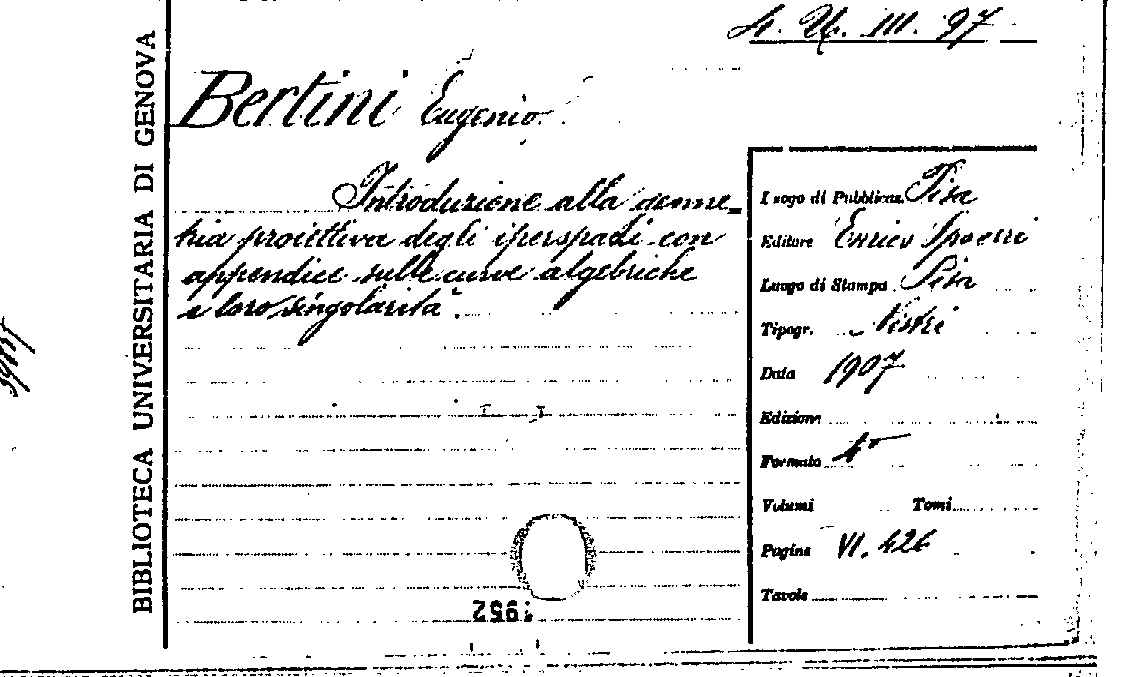 4. U. III. 97
BIBLIOTECA UNIVERSITARIA DI GENOVA
Bertini Eugenio
Introduzione alla geome-
tria proiettiva degli iperspazi con
appendice sulle curve algebriche
e loro singolarità.
Luogo di Pubblicaz. Pisa
Editore Enrico Spoerri
Luogo di Stampa Pisa
Tipogr. Nistri
Data 1907
Edizione
Formato 4°
Volumi Tomi
Pagine VI. 426
Tavole
1952